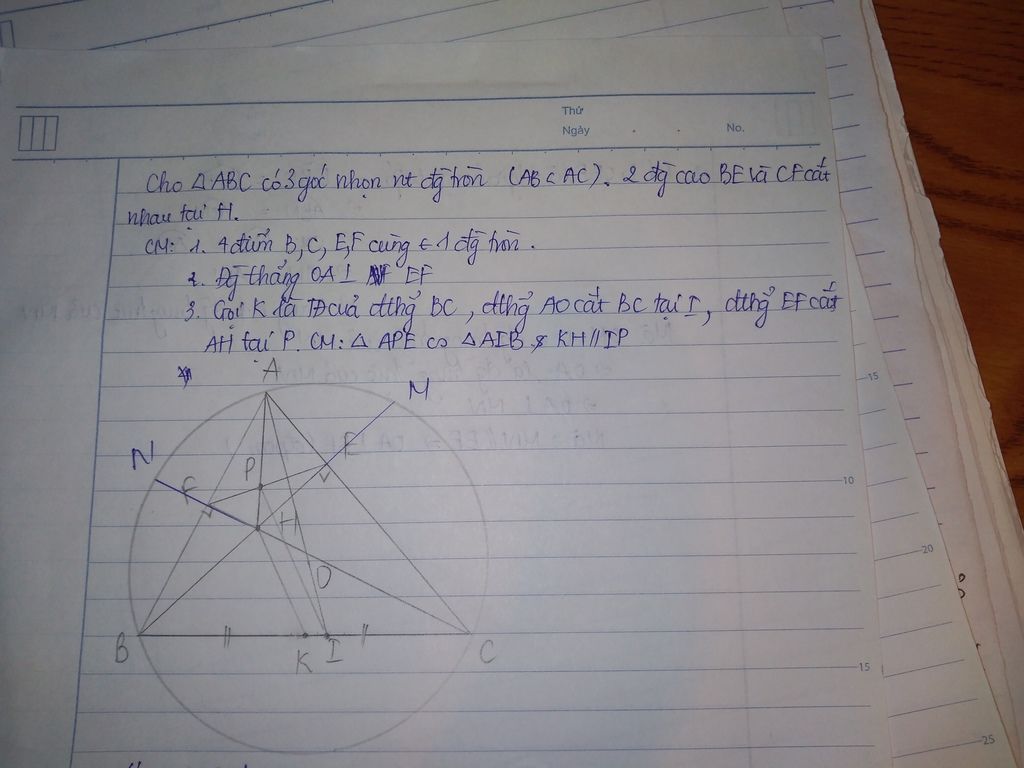 Thứ
Ngày
No.
Cho △ABC có 3 góc nhọn nt đg tròn (AB < AC). 2 đg cao BE và CF cắt
nhau tại H.
CM: 1. 4 điểm B, C, E, F cùng ∈ 1 đg tròn.
2. Đg thẳng OA ⊥ EF
3. Gọi K là TĐ của đthg BC, đthg AO cắt BC tại I, đthg EF cắt
AH tại P. CM: △ APE ∽ △AIB & KH // IP
A
M
N
E
F
P
H
O
B
K I
C
15
10
20
15
25